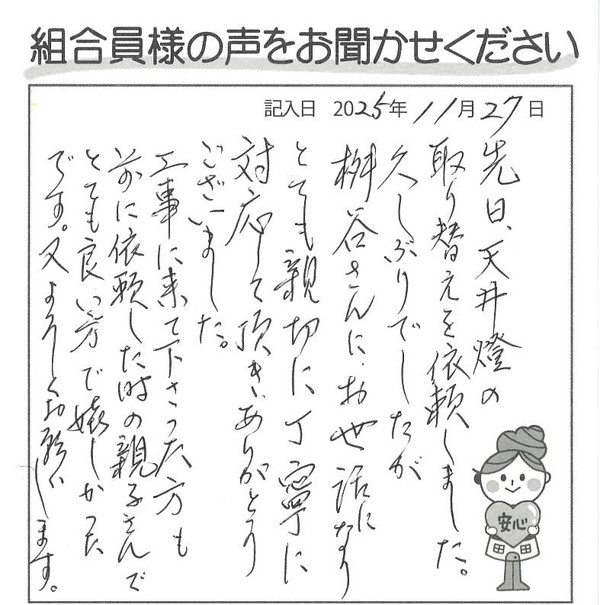 組合員様の声をお聞かせください
記入日 2025年 11月 27日
先日、天井燈の
取り替えを依頼しました。
久しぶりでしたが
桝谷さんに、お世話になり
とても親切に丁寧に
対応して頂き、ありがとう
ございました。
工事に来て下さった方も
前に依頼した時の親子さんで
とても良い方で嬉しかった
です。又よろしくお願いします。
安心